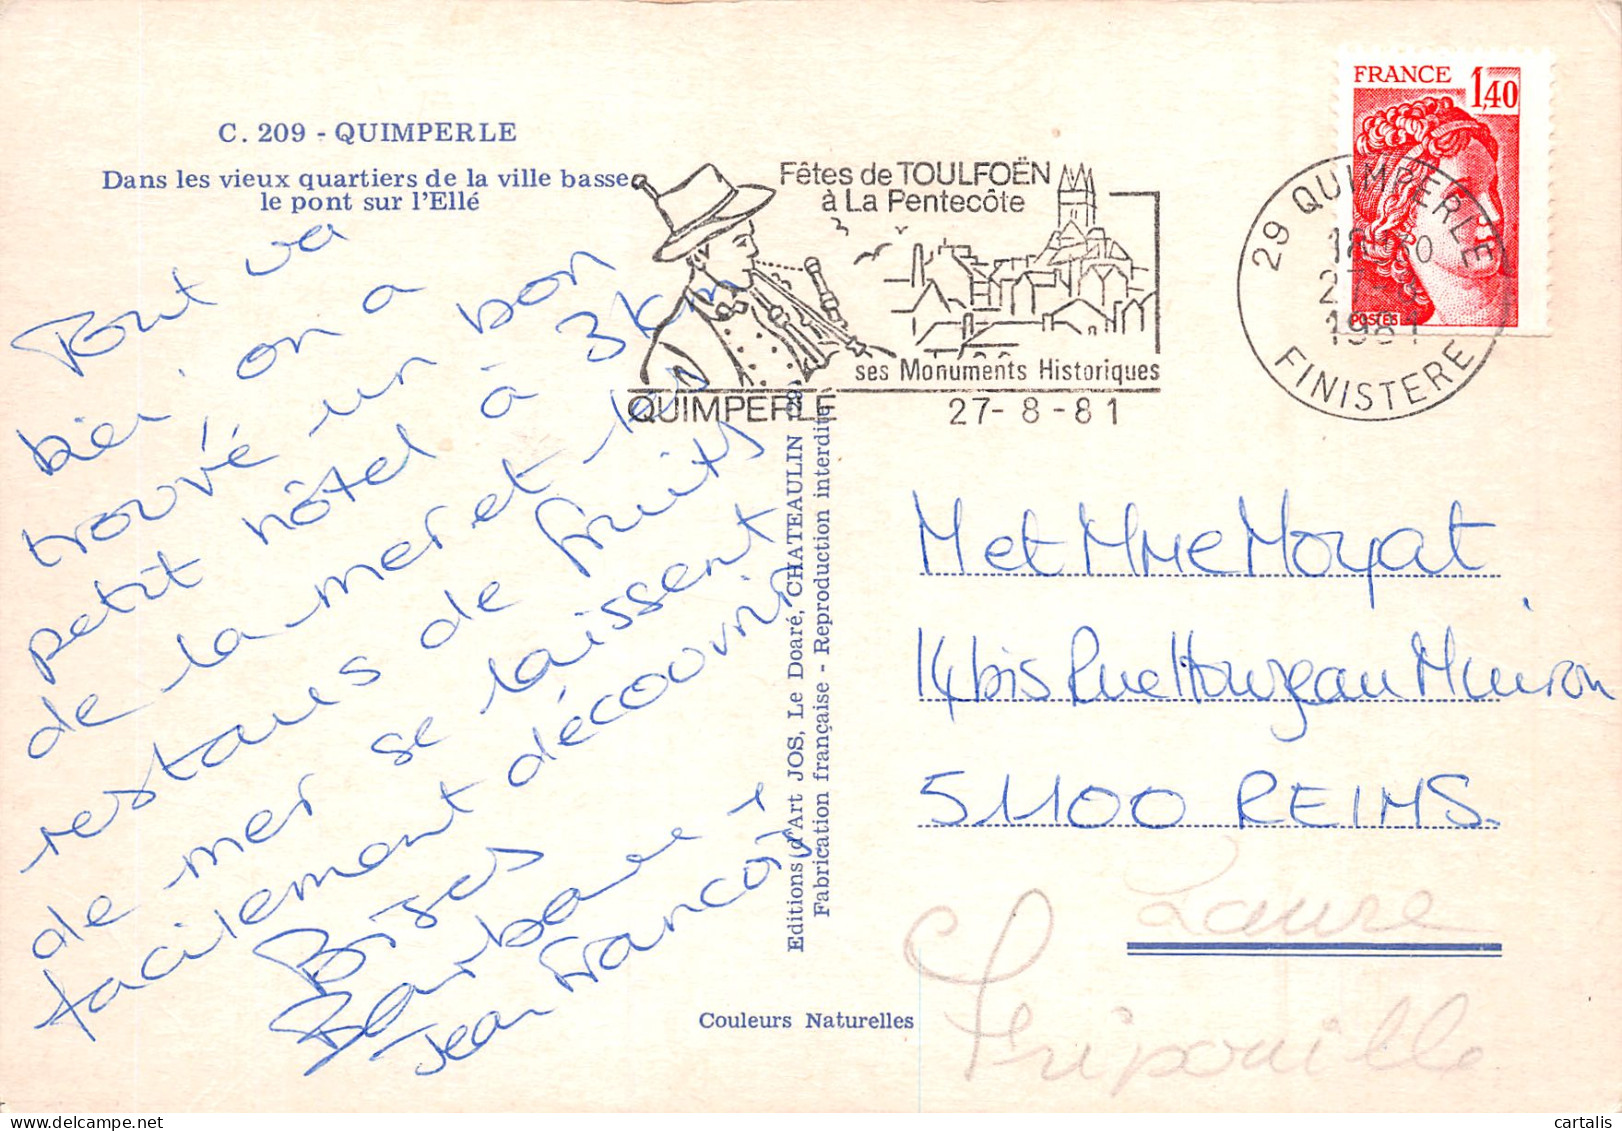 C. 209 - QUIMPERLE
Dans les vieux quartiers de la ville basse
le pont sur l'Ellé
Tout va
bien, on a
trouvé un bon
petit hôtel à 3 km
de la mer et les
restaus de fruits
de mer se laissent
facilement découvrir
Bises
Barbara +
Jean François
Editions d'Art JOS, Le Doaré, CHATEAULIN 29
Fabrication française - Reproduction interdite
Couleurs Naturelles
Fêtes de TOULFOËN
à La Pentecôte
ses Monuments Historiques
QUIMPERLE
27-8-81
FRANCE 1,40
POSTES
29 QUIMPERLE
27-8
1981
FINISTERE
M et Mme Moyat
14 bis Rue Houzeau Muiron
51100 REIMS.
Laure
Fripouille
cartalis